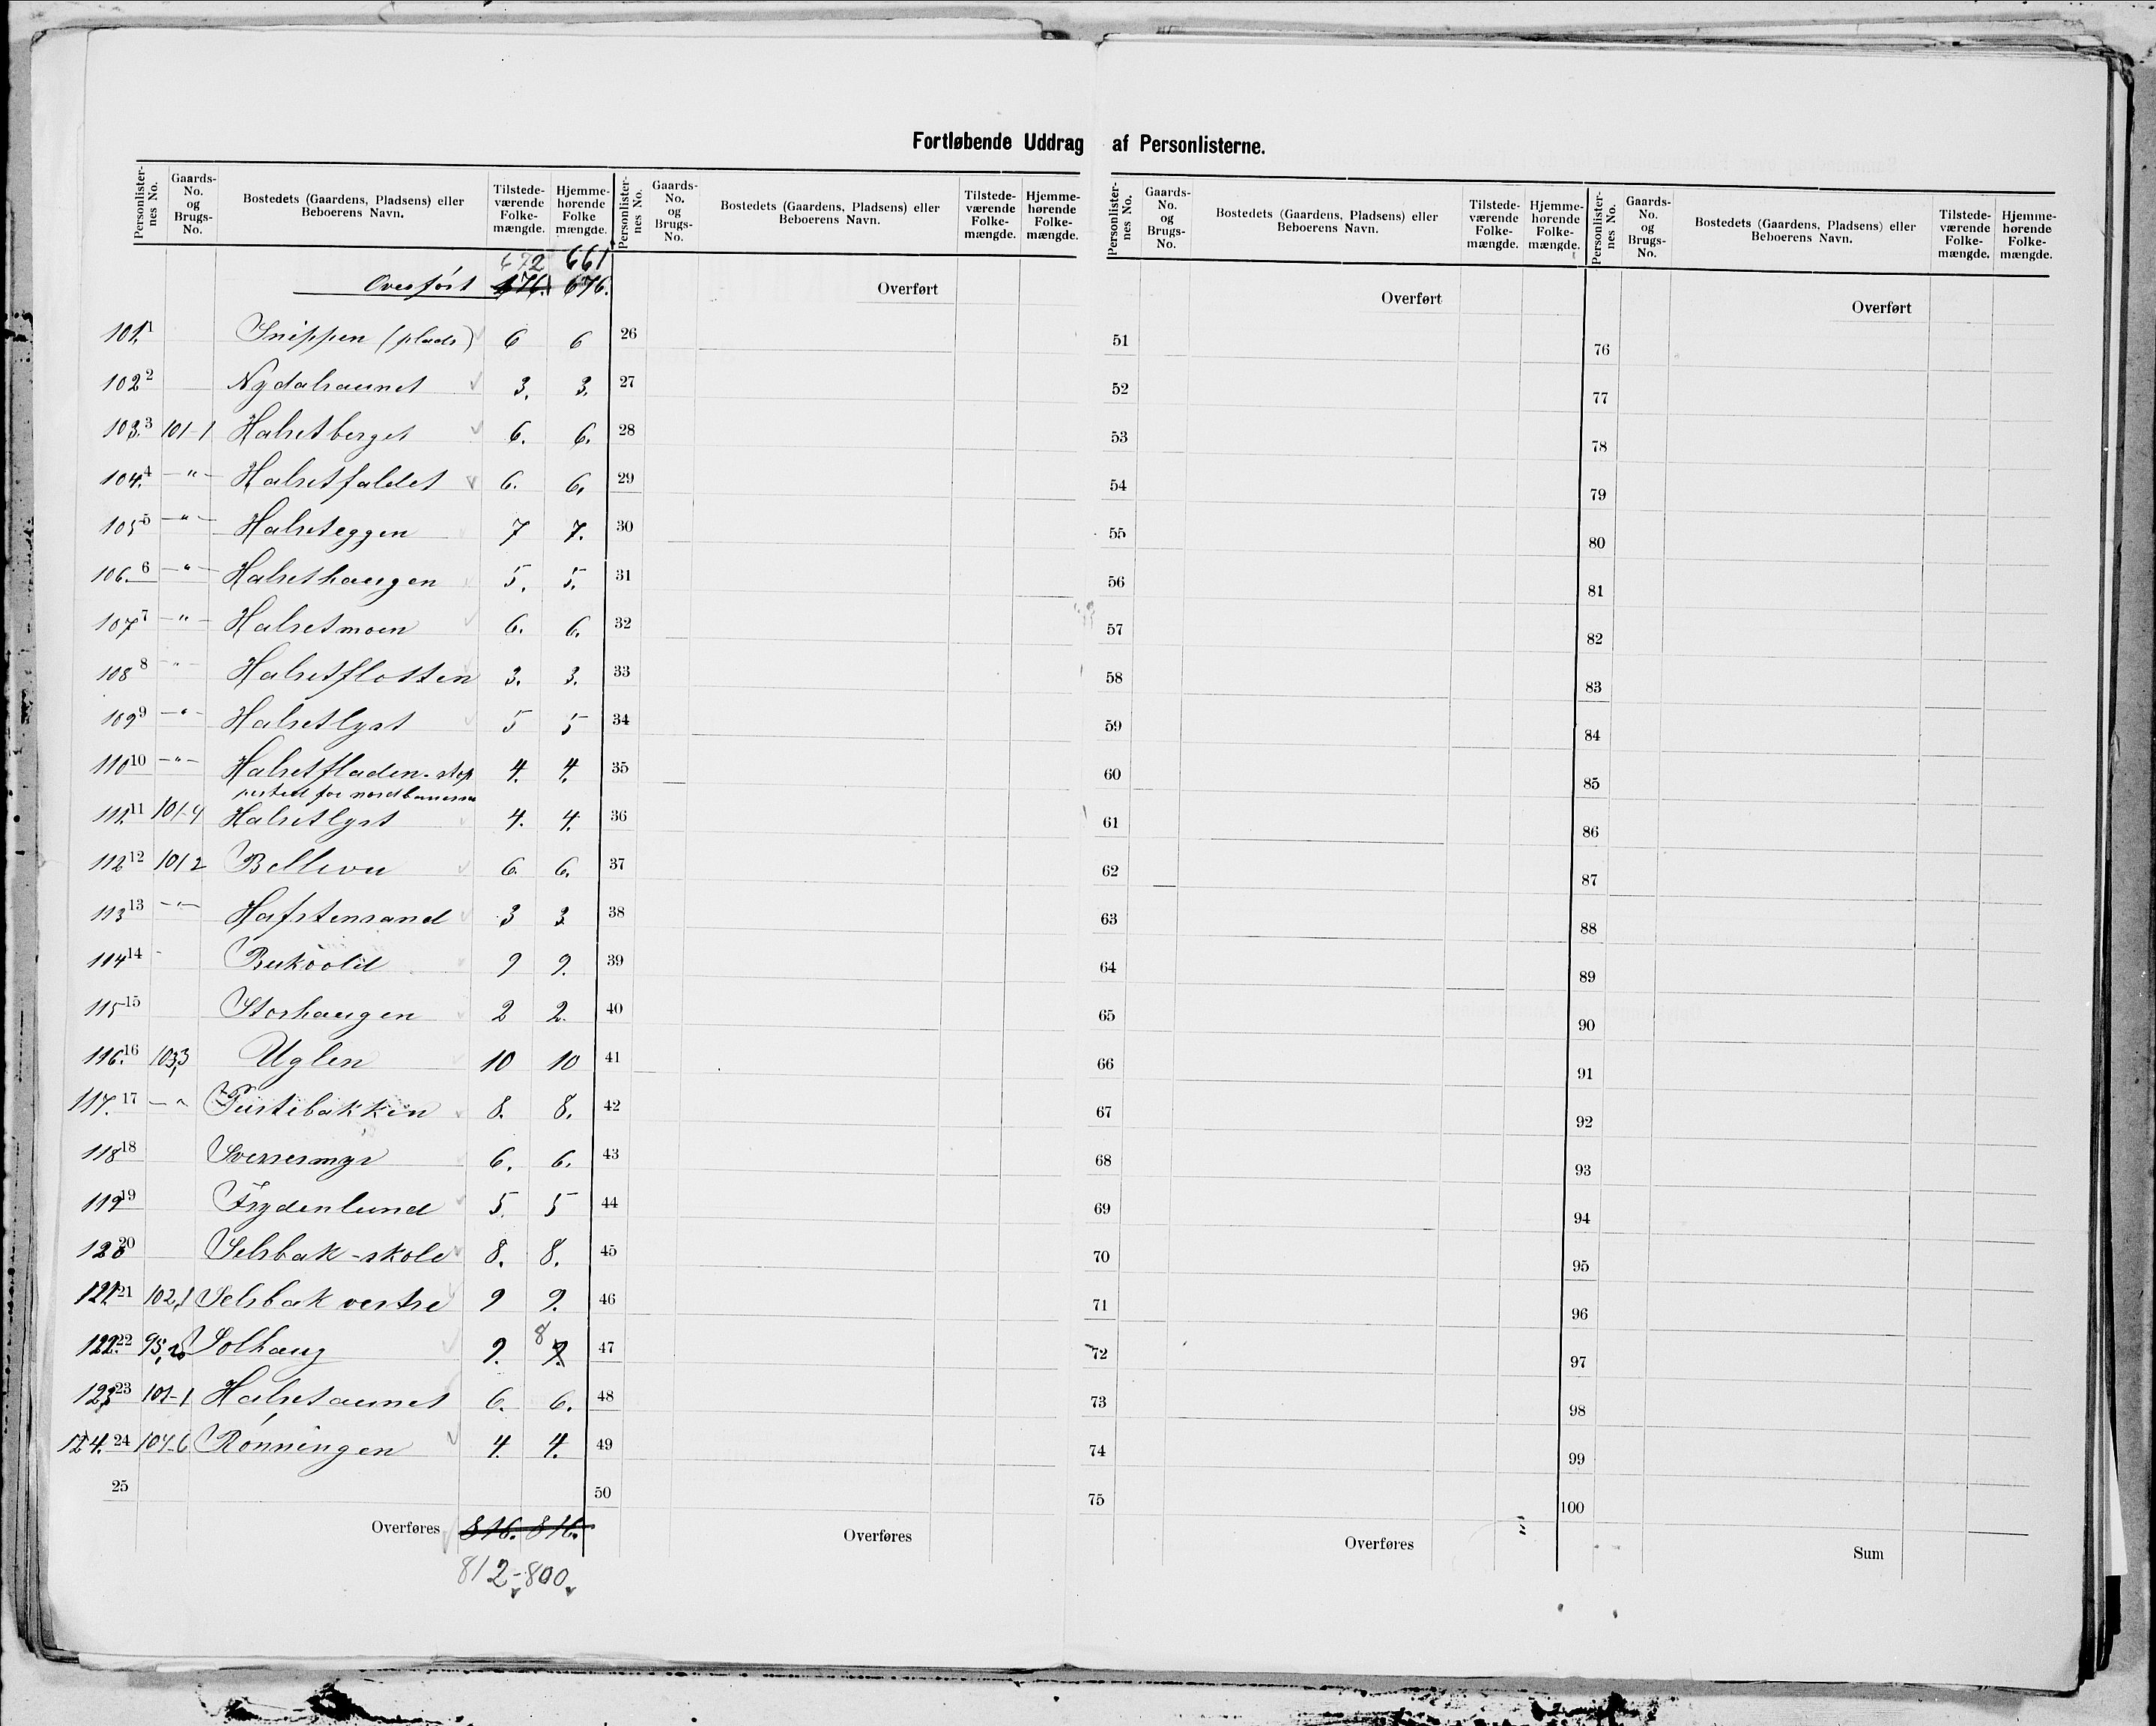 Fortløbende Uddrag af Personlisterne.
Personlisternes No. Gaards-No. og Brugs-No. Bostedets (Gaardens, Pladsens) eller Beboerens Navn. Tilstedeværende Folkemængde. Hjemmehørende Folkemængde.
Personlisternes No. Gaards-No. og Brugs-No. Bostedets (Gaardens, Pladsens) eller Beboerens Navn. Tilstedeværende Folkemængde. Hjemmehørende Folkemængde.
Personlisternes No. Gaards-No. og Brugs-No. Bostedets (Gaardens, Pladsens) eller Beboerens Navn. Tilstedeværende Folkemængde. Hjemmehørende Folkemængde.
Personlisternes No. Gaards-No. og Brugs-No. Bostedets (Gaardens, Pladsens) eller Beboerens Navn. Tilstedeværende Folkemængde. Hjemmehørende Folkemængde.
672 661
Overført 676. 676. Overført Overført Overført
101. 1 Snippen (plads) 6 6 26 51 76
102 2 Nydalsaunet 3. 3. 27 52 77
103. 3 101-1 Halsetberget 6. 6. 28 53 78
104. 4 -"- Halsetfaldet 6. 6. 29 54 79
105 5 -"- Halseteggen 7 7. 30 55 80
106. 6 -"- Halsethaugen 5. 5. 31 56 81
107 7 -"- Halsetmoen 6. 6. 32 57 82
108 8 -"- Halsetflotten 3. 3. 33 58 83
109 9 -"- Halsetlyst 5 5 34 59 84
110 10 -"- Halsetfladen. stop 4. 4. 35 60 85
for nordbanerne
111. 11 101-4 Halsetlyst 4. 4. 36 61 86
112 12 101 2 Bellevu 6. 6. 37 62 87
113 13 -"- Hafstensand 3 3 38 63 88
114 14 - Bukvold 9 9. 39 64 89
115 15 Storhaugen 2 2. 40 65 90
116. 16 103,3 Uglen 10 10 41 66 91
117. 17 -" Pustebakken 8. 8. 42 67 92
118 18 Sverresmyr 6. 6. 43 68 93
119 19 Frydenlund 5. 5 44 69 94
120 20 Selsbak-skole 8. 8. 45 70 95
121. 21 102,1 Selsbak vestre 9 9. 46 71 96
122. 22 Solhaug 9. 9. 8 47 72 97
123 23 101-1 Halsetaunet 6. 6. 48 73 98
124. 24 104-6 Rønningen 4. 4. 49 74 99
25 50 75 100
Overføres 816. 816. Overføres Overføres Sum
812-800